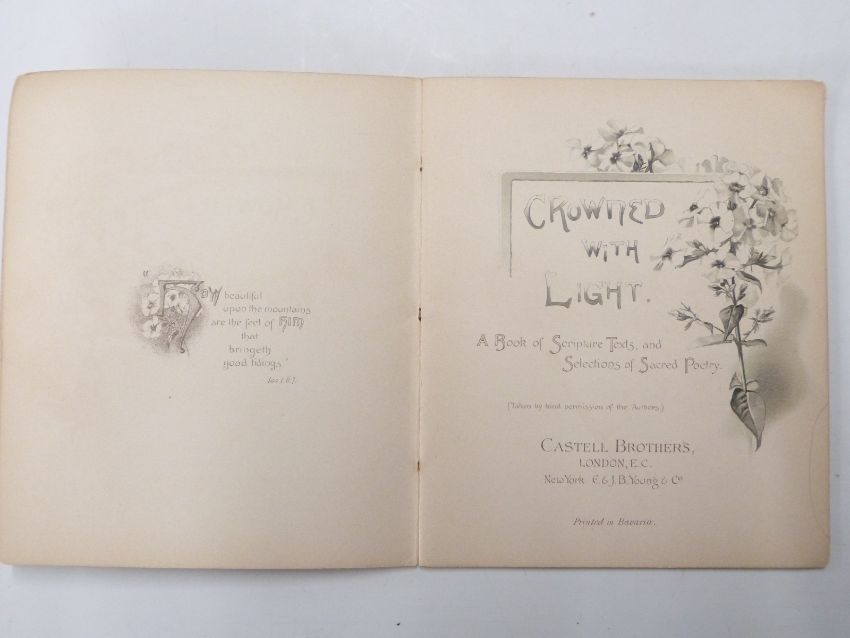 "How beautiful
upon the mountains
are the feet of HIM
that
bringeth
good tidings."
CROWNED
WITH
LIGHT.
A Book of Scripture Texts, and
Selections of Sacred Poetry.
(Taken by kind permission of the Authors.)
CASTELL BROTHERS,
LONDON, E.C.
New York E. & J. B. Young & Co
Printed in Bavaria.